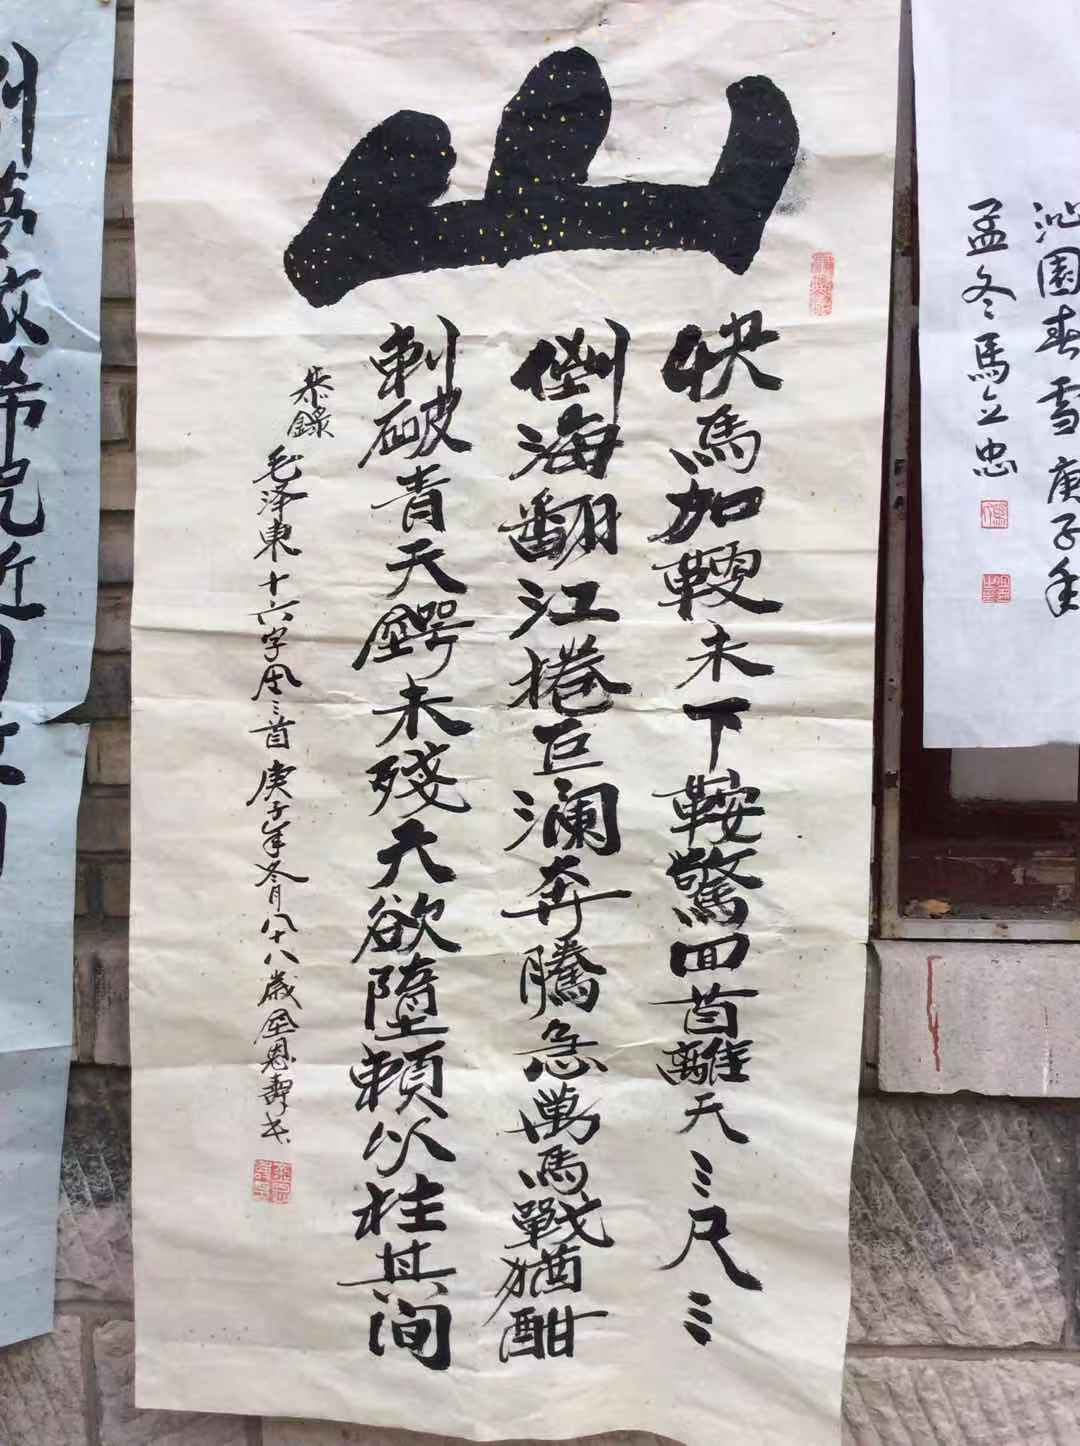 沁園春雪 庚子年
孟冬馬立忠
山
快馬加鞭未下鞍驚回首離天三尺三
倒海翻江捲巨澜奔騰急萬馬戰猶酣
刺破青天鍔未殘天欲墮賴以柱其間
恭錄
毛泽東十六字令三首 庚子年冬月八十八歲恩壽书